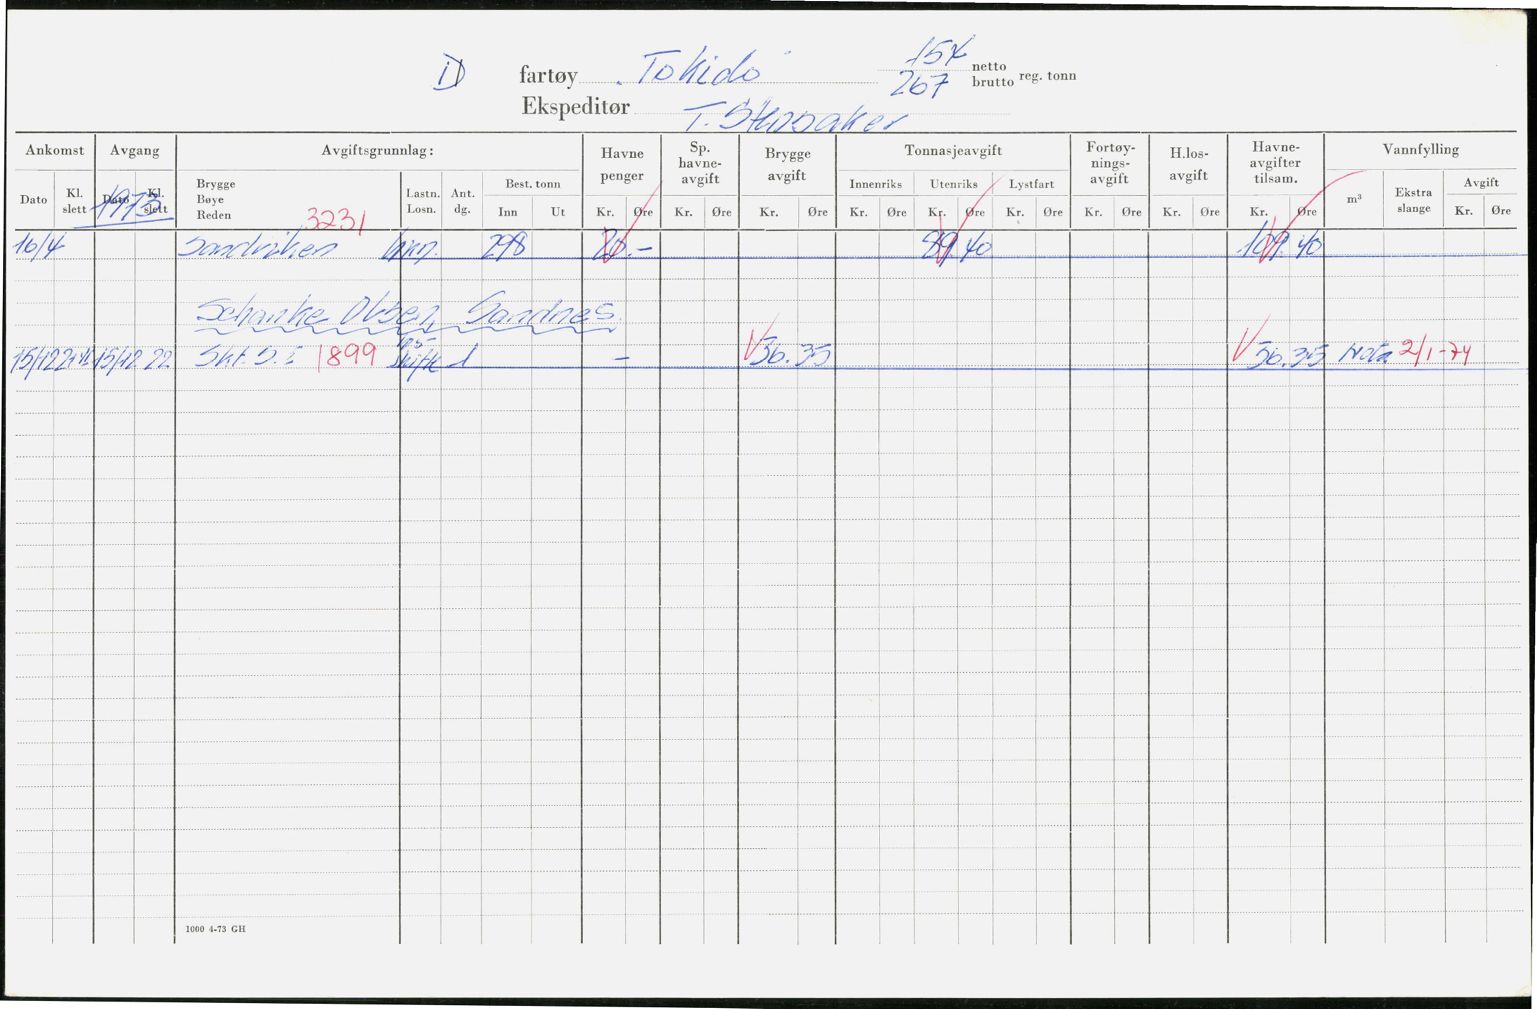 D fartøy "Tokido" 154 netto
267 brutto reg. tonn
Ekspeditør T. Stensaker
Ankomst Avgang Avgiftsgrunnlag: Havne penger Sp. havne-avgift Brygge avgift Tonnasjeavgift Fortøy-nings-avgift H.los-avgift Havne-avgifter tilsam. Vannfylling
Dato Kl. slett Dato Kl. slett Brygge Bøye Reden Lastn. Losn. Ant. dg. Best. tonn Innenriks Utenriks Lystfart m³ Ekstra slange Avgift
Inn Ut Kr. Øre Kr. Øre Kr. Øre Kr. Øre Kr. Øre Kr. Øre Kr. Øre Kr. Øre Kr. Øre Kr. Øre
1973 3231
16/4 Sandviken 298 20.- 89.40 109.40
Schanke Olsen, Sandnes.
15/12 15/12 22 Skt. 1899 skifte 1 - 36.35 36.35 Nota 2/1-74
1000 4-73 GH